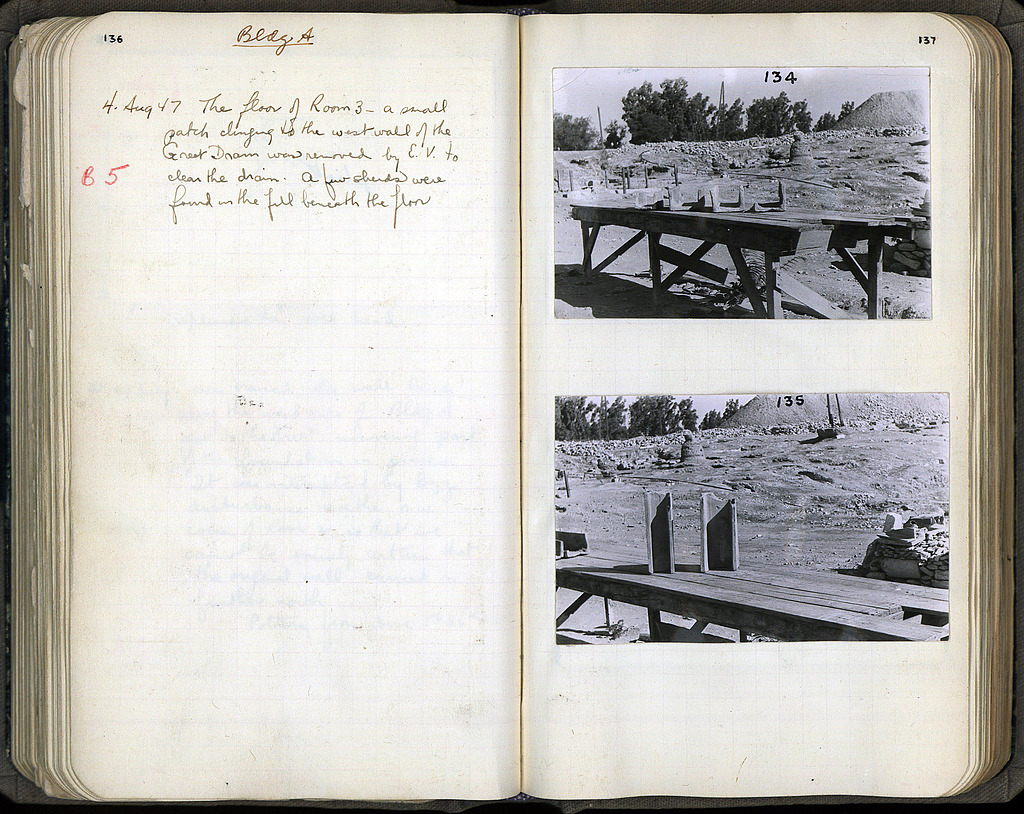 136
Bldg A
4. Aug 47 The floor of Room 3 – a small
patch clinging to the west wall of the
Great Drain was removed by E. V. to
B 5
clear the drain. A few sherds were
found in the fill beneath the floor
137
134
135